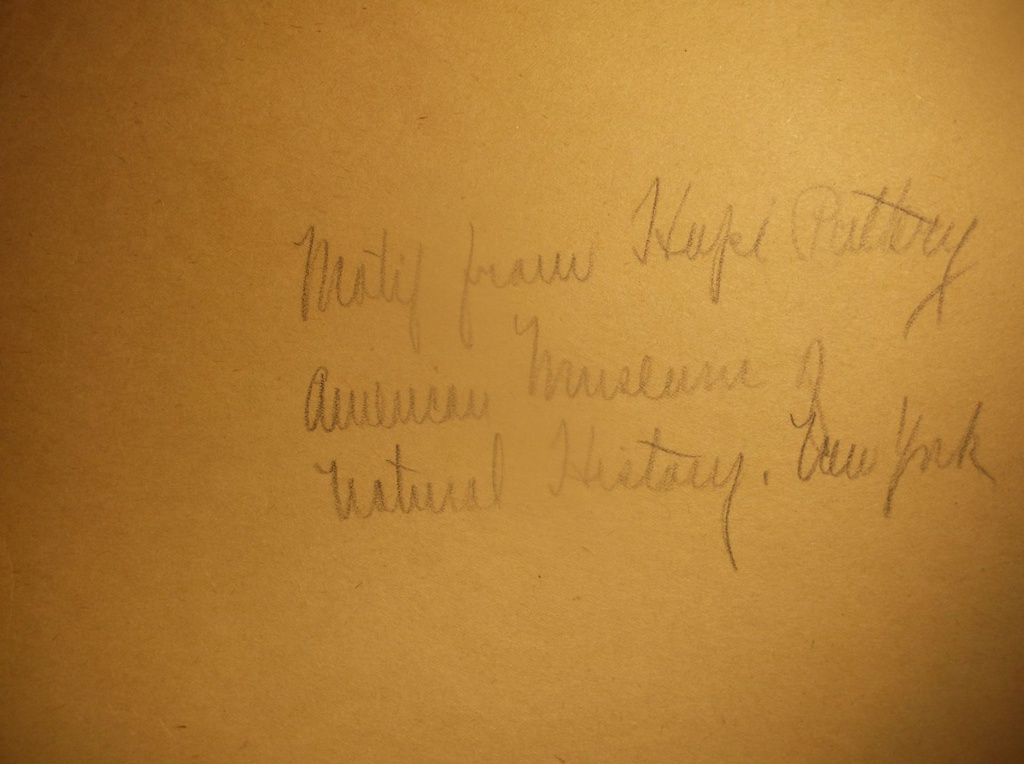 Motif from Hopi Pottery
American Museum of
Natural History. New York